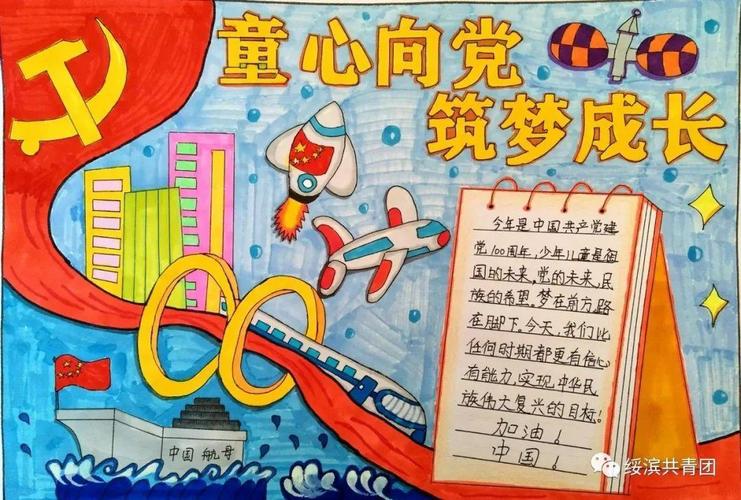 童心向党
筑梦成长
今年是中国共产党建
党100周年,少年儿童是祖
国的未来,党的未来,民
族的希望,梦在前方,路
在脚下。今天,我们比
任何时期都更有信心,
有能力,实现,中华民
族伟大复兴的目标!
加油!
中国!
中国航母
绥滨共青团